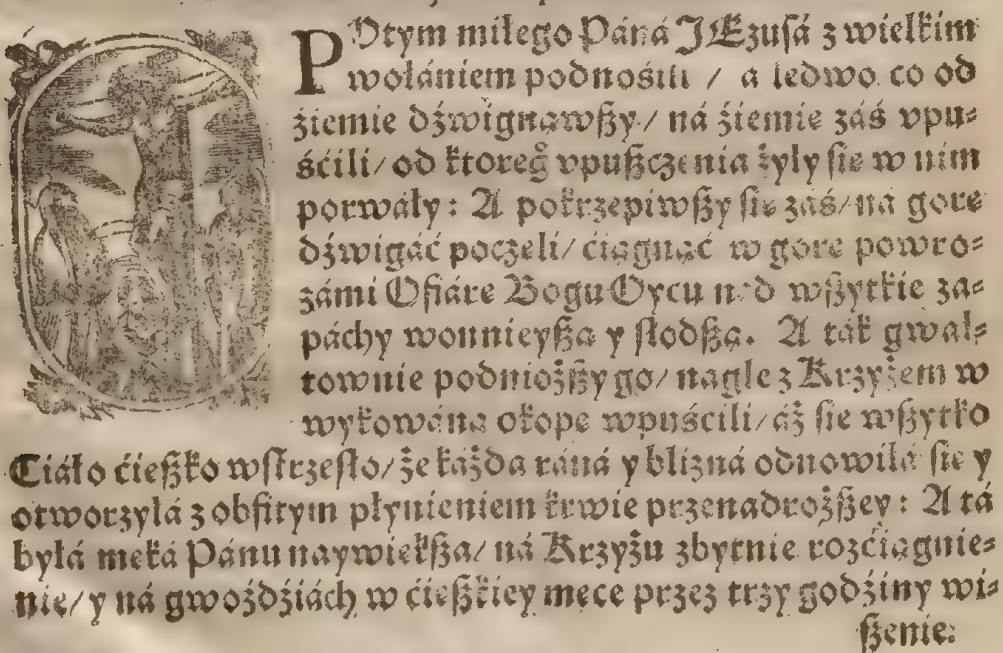 POtym miłego Páná JEzusá z wielkim
wołániem podnośili / a ledwo co od
źiemie dźwignąwßy / ná źiemie záś vpu⸗
śćili / od ktoreg̊ vpußczenia żyły sie w nim
porwáły : A pokrzepiwßy sie záś / ná gore
dźwigáć poczeli / ćiągnąć w gore powro⸗
zámi Ofiáre Bogu Oycu nád wßytkie za⸗
páchy wonnieyßą y słodßą. A ták gwał⸗
townie podniożßy go / nagle z Krzyżem w
wykowáną okopę wpuśćili / áż sie wßytko
Ciáło ćießko wstrzesło / że każda ráná y blizná odnowiłá sie y
otworzyłá z obfitym płynieniem krwie przenadrożßey : A tá
byłá męká Pánu naywiekßa / ná Krzyżu zbytnie rozćiągnie⸗
nie / y ná gwoźdźiách w ćießkiey męce przez trzy godźiny wi⸗
ßenie: